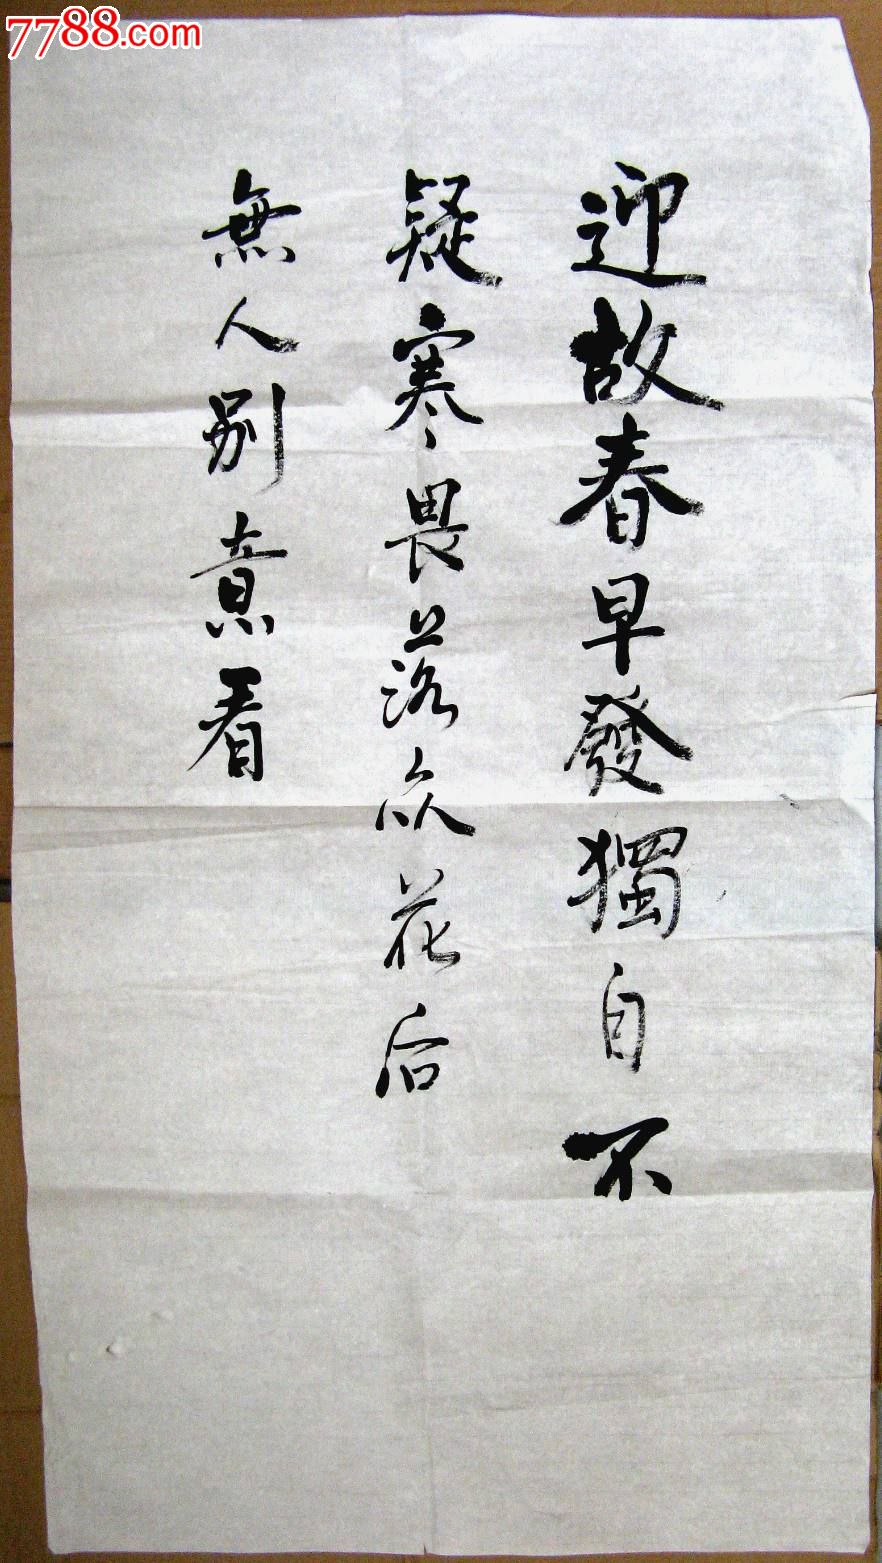 7788.com
迎故春早發獨自不
疑寒畏落众花后
無人别意看